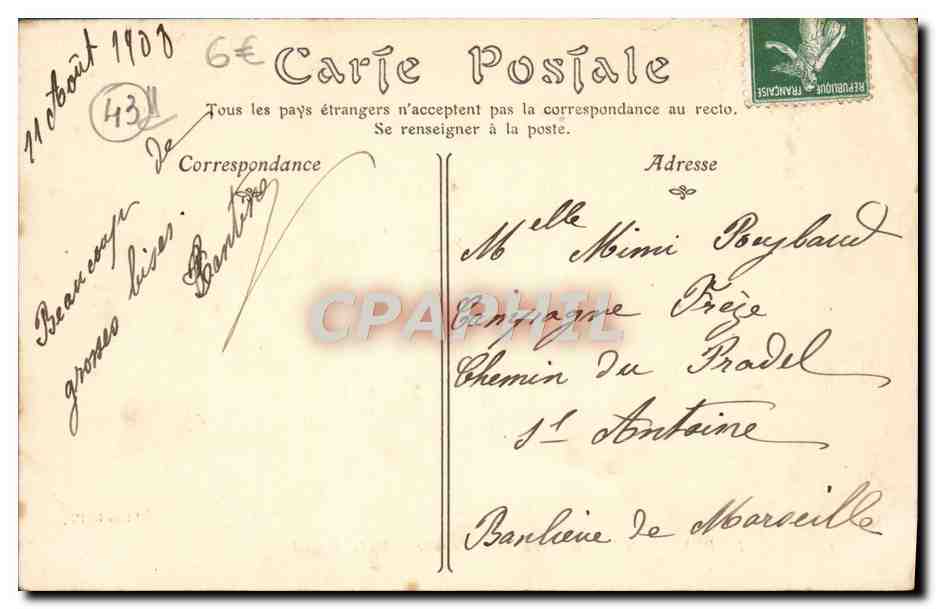 11 Août 1908
6€
43
Carte Postale
REPUBLIQUE FRANÇAISE
Tous les pays étrangers n'acceptent pas la correspondance au recto.
Se renseigner à la poste.
Correspondance
Adresse
Beaucoup de
grosses bises.
Melle Mimi Reybaud
Campagne Frèze
Chemin du Pradel
St Antoine
Banlieue de Marseille
CPAPHIL